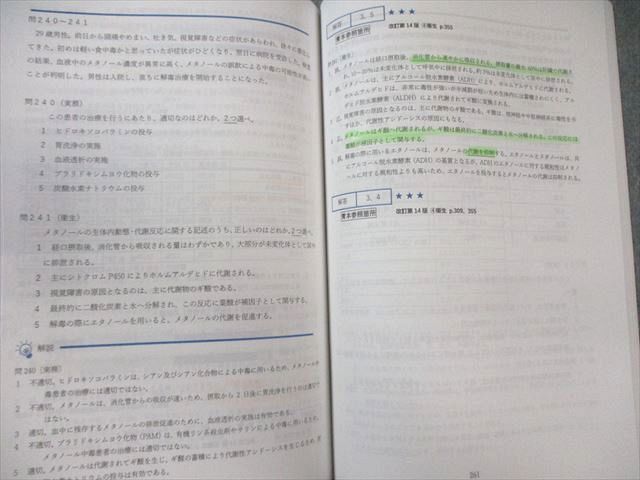 問240～241
29歳男性。前日から頭痛やめまい、吐き気、視覚障害などの症状があらわれ、徐々に悪化し
てきた。初めは軽い食中毒かと思っていたが症状がひどくなり、翌日に病院を受診した。検査
の結果、血液中のメタノール濃度が異常に高く、メタノールの誤飲による中毒の可能性が高い
ことが判明した。男性は入院し、直ちに解毒治療を開始することになった。
問240（実務）
この患者の治療を行うにあたり、適切なのはどれか。2つ選べ。
1 ヒドロキソコバラミンの投与
2 胃洗浄の実施
3 血液透析の実施
4 プラリドキシムヨウ化物の投与
5 炭酸水素ナトリウムの投与
問241（衛生）
メタノールの生体内動態・代謝反応に関する記述のうち、正しいのはどれか。2つ選べ。
1 経口摂取後、消化管から吸収される量はわずかであり、大部分が未変化体として
に排泄される。
2 主にシトクロムP450によりホルムアルデヒドに代謝される。
3 視覚障害の原因となるのは、主に代謝物のギ酸である。
4 最終的に二酸化炭素と水へ分解され、この反応に葉酸が補因子として関与する。
5 解毒の際にエタノールを用いると、メタノールの代謝を促進する。
解説
問240（実務）
1 不適切。ヒドロキソコバラミンは、シアン及びシアン化合物による中毒に用いるため、メタノール
毒患者の治療には適切ではない。
2 不適切。メタノールは、消化管からの吸収が速いため、摂取から2日後に胃洗浄を行うのは適切
はない。
3 適切。血中に残存するメタノールの排泄促進のために、血液透析の実施は有効である。
4 不適切。プラリドキシムヨウ化物（PAM）は、有機リン系殺虫剤やサリンによる中毒に用いるため、
メタノール中毒患者の治療には適切ではない。
5 適切。メタノールは代謝されてギ酸を生じ、ギ酸の蓄積により代謝性アシドーシスを生じるため、
ナトリウムの投与は有効である。
解答 3、5 ★★★
青本参照箇所 改訂第14版 ④衛生 p.355
問241（衛生）
され、10～20%は未変化体として呼気中に排泄される。約3%は未変化体として尿中に排泄される。
2 誤。メタノールは、主にアルコール脱水素酵素（ADH）により、ホルムアルデヒドに代謝される。
ド脱水素酵素（ALDH）により代謝されてギ酸に変換される。
ずほか、代謝性アシドーシスの原因にもなる。
4 正。メタノールはギ酸へ代謝されるが、ギ酸は最終的に二酸化炭素と水へ分解される。この反応には
葉酸が補因子として関与する。
5 誤。解毒の際に用いるエタノールは、メタノールの代謝を抑制する。エタノールとメタノールは、共
にアルコール脱水素酵素（ADH）の基質となるが、ADHのエタノールに対する親和性はメタノール
に対する親和性よりも高いため、エタノールを投与するとメタノールの代謝は抑制される。
解答 3、4 ★★★
青本参照箇所 改訂第14版 ④衛生 p.309、355
261